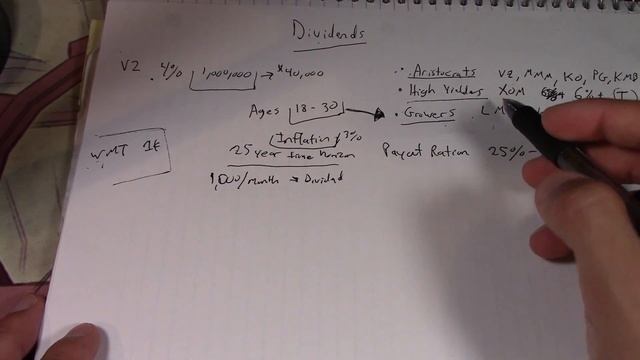 Dividends
VZ .4% 1,000,000 → $40,000
Aristocrats VZ, MMM, KO, PG, KMB
High Yielders XOM 6%+ (T)
Growers
Ages 18-30
Inflation 3%
25 year time horizon
1,000/month → Dividad
WMT 1¢
Payout Ration 25% -